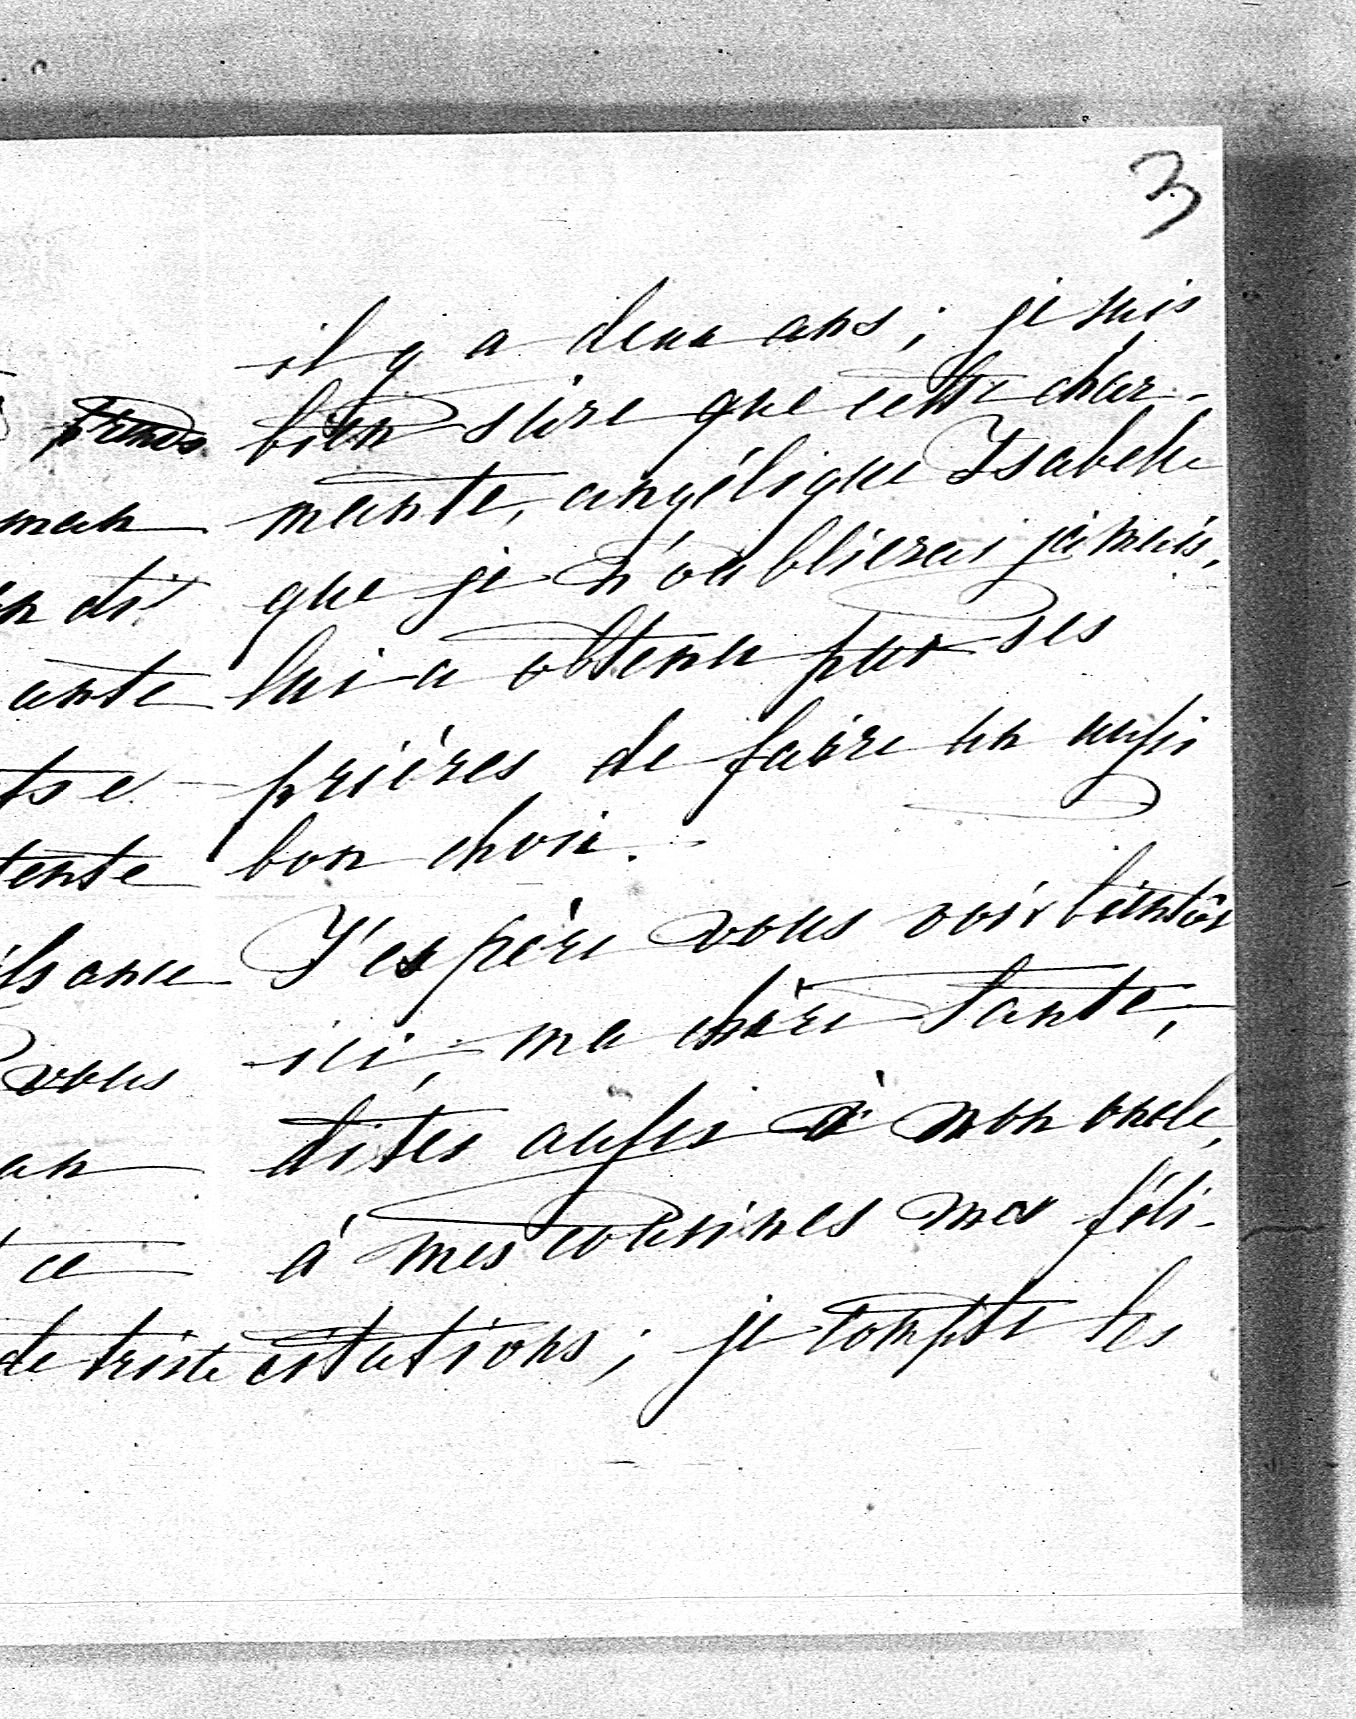 3
il y a deux ans ; je suis
bien sûre que cette char-
mante, angélique Isabelle
que je n'oublierai jamais,
lui a obtenu par ses
prières de faire un aussi
bon choix.
J'espère vous voir bientôt
ici, ma chère Tante,
dites aussi à mon oncle,
à mes cousines mes féli-
citations ; je compte les
man
n dit
ante
tente
vous
an
ce
de triste